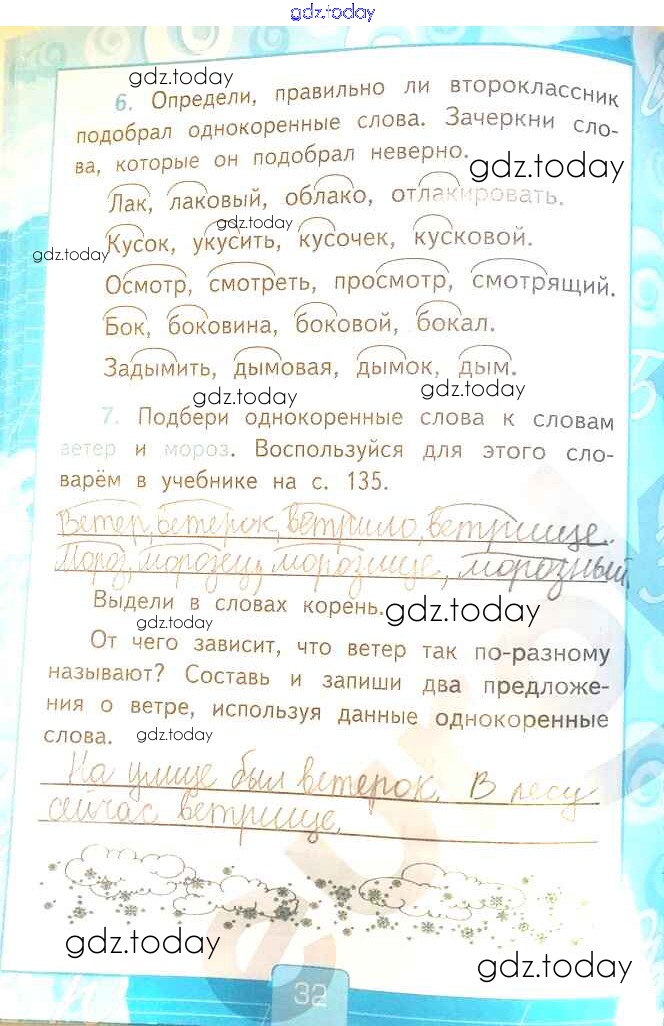 gdz.today
gdz.today
6. Определи, правильно ли второклассник
подобрал однокоренные слова. Зачеркни сло-
ва, которые он подобрал неверно.
gdz.today
Лак, лаковый, облако, отлакировать.
gdz.today
Кусок, укусить, кусочек, кусковой.
gdz.today
Осмотр, смотреть, просмотр, смотрящий.
Бок, боковина, боковой, бокал.
Задымить, дымовая, дымок, дым.
gdz.today gdz.today
7. Подбери однокоренные слова к словам
ветер и мороз. Воспользуйся для этого сло-
варём в учебнике на с. 135.
Ветер, ветерок, ветрило, ветрище.
Мороз, морозец, морозище, морозный
Выдели в словах корень.
gdz.today gdz.today
От чего зависит, что ветер так по-разному
называют? Составь и запиши два предложе-
ния о ветре, используя данные однокоренные
слова.
gdz.today
На улице был ветерок. В лесу
сейчас ветрище.
gdz.today
gdz.today
32